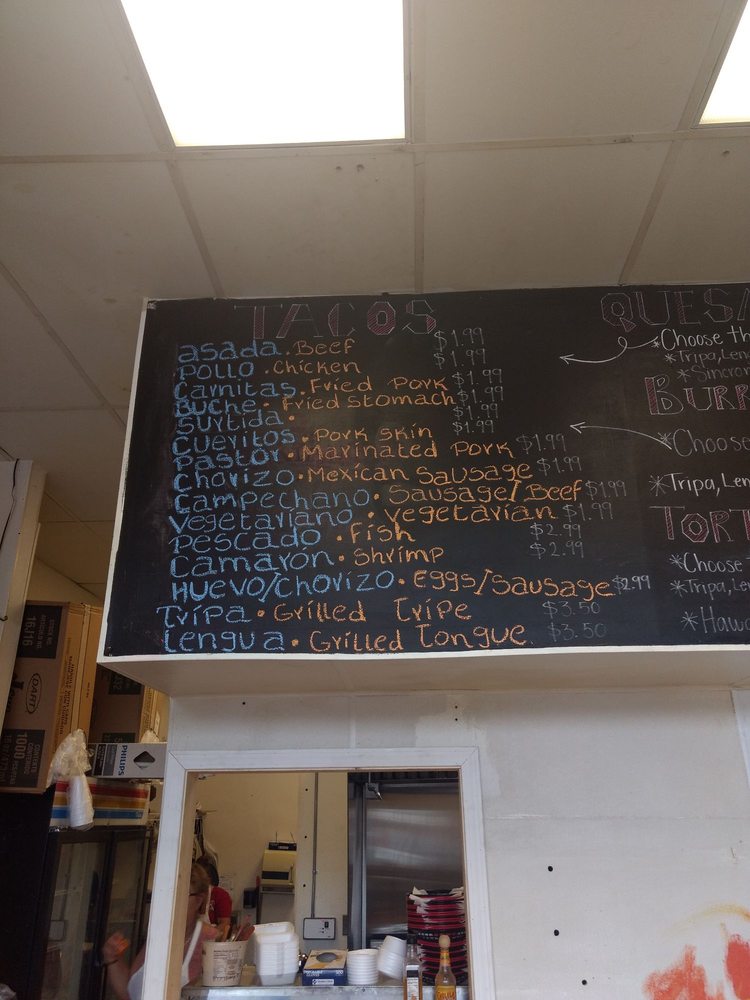 TACOS
asada. Beef $1.99
Pollo. Chicken $1.99
Carnitas. Fried Pork $1.99
Buche. Fried Stomach $1.99
Surtida. $1.99
Cueritos. Pork skin $1.99
Pastor. Marinated Pork $1.99
Chorizo. Mexican Sausage $1.99
Campechano. Sausage/Beef $1.99
Vegetariano. vegetarian $1.99
Pescado. Fish $2.99
Camarón. Shrimp $2.99
HUEVO/Chorizo. Eggs/Sausage $2.99
Tripa. Grilled Tripe $3.50
Lengua. Grilled Tongue $3.50
QUESA
Choose th
*Tripa, Len
*Sincron
BURR
*Choose
*Tripa, Len
TORT
*Choose
*Tripa, Le
*Hawa
16J16
DART
1000
PHILIPS